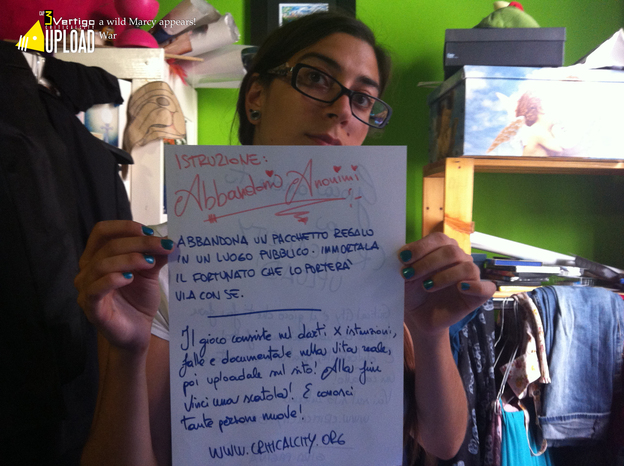 3 Vertigo
a wild Marcy appears!
UPLOAD
War
ISTRUZIONE:
Abbandoni Anonimi
ABBANDONA UN PACCHETTO REGALO
IN UN LUOGO PUBBLICO. IMMORTALA
IL FORTUNATO CHE LO PORTERÀ
VIA CON SE.
Il gioco consiste nel darti x istruzioni,
falle e documentale nella vita reale,
poi uploadale sul sito! Alla fine
vinci una scatola! E conosci
tante persone nuove!
WWW.CRITICALCITY.ORG